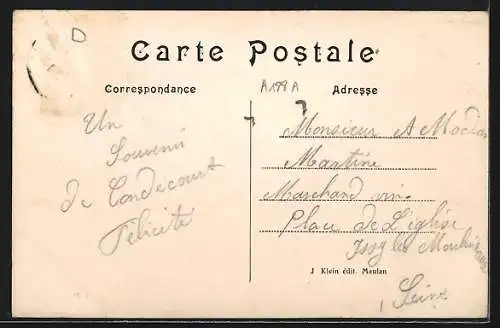 D
Carte Postale
Correspondance
A188A
Adresse
Un
Souvenir
de Condecourt
Félicité
Monsieur A
Martine
Marchand vins
Place de L'église
Issy les Moulin
Seine
J Klein édit. Meulan